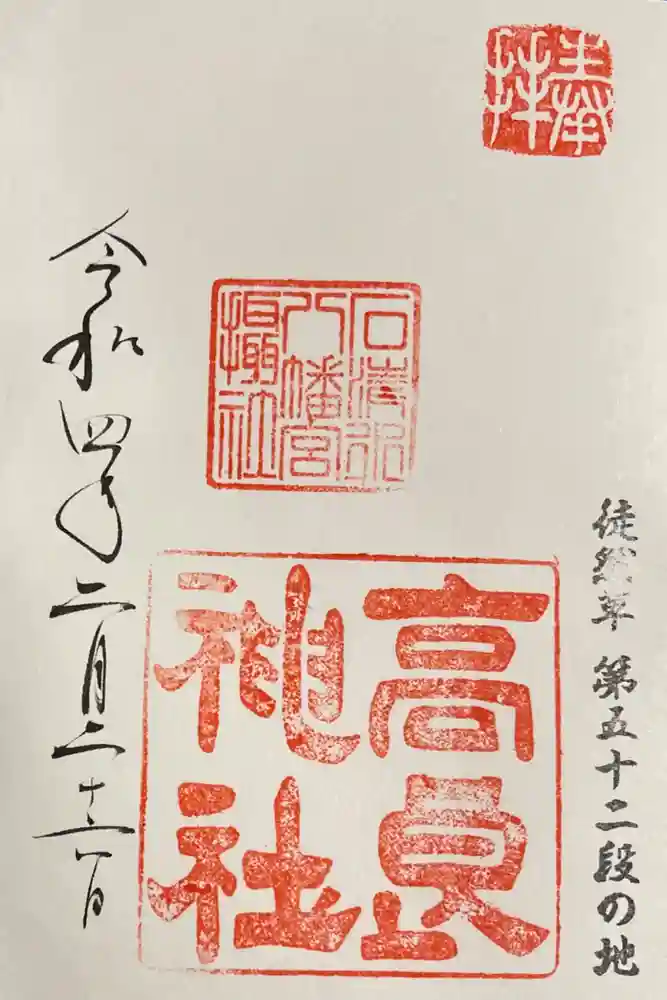 奉拝
徒然草 第五十二段の地
石清水
八幡宮
攝社
高良
神社
令和四年二月二十六日